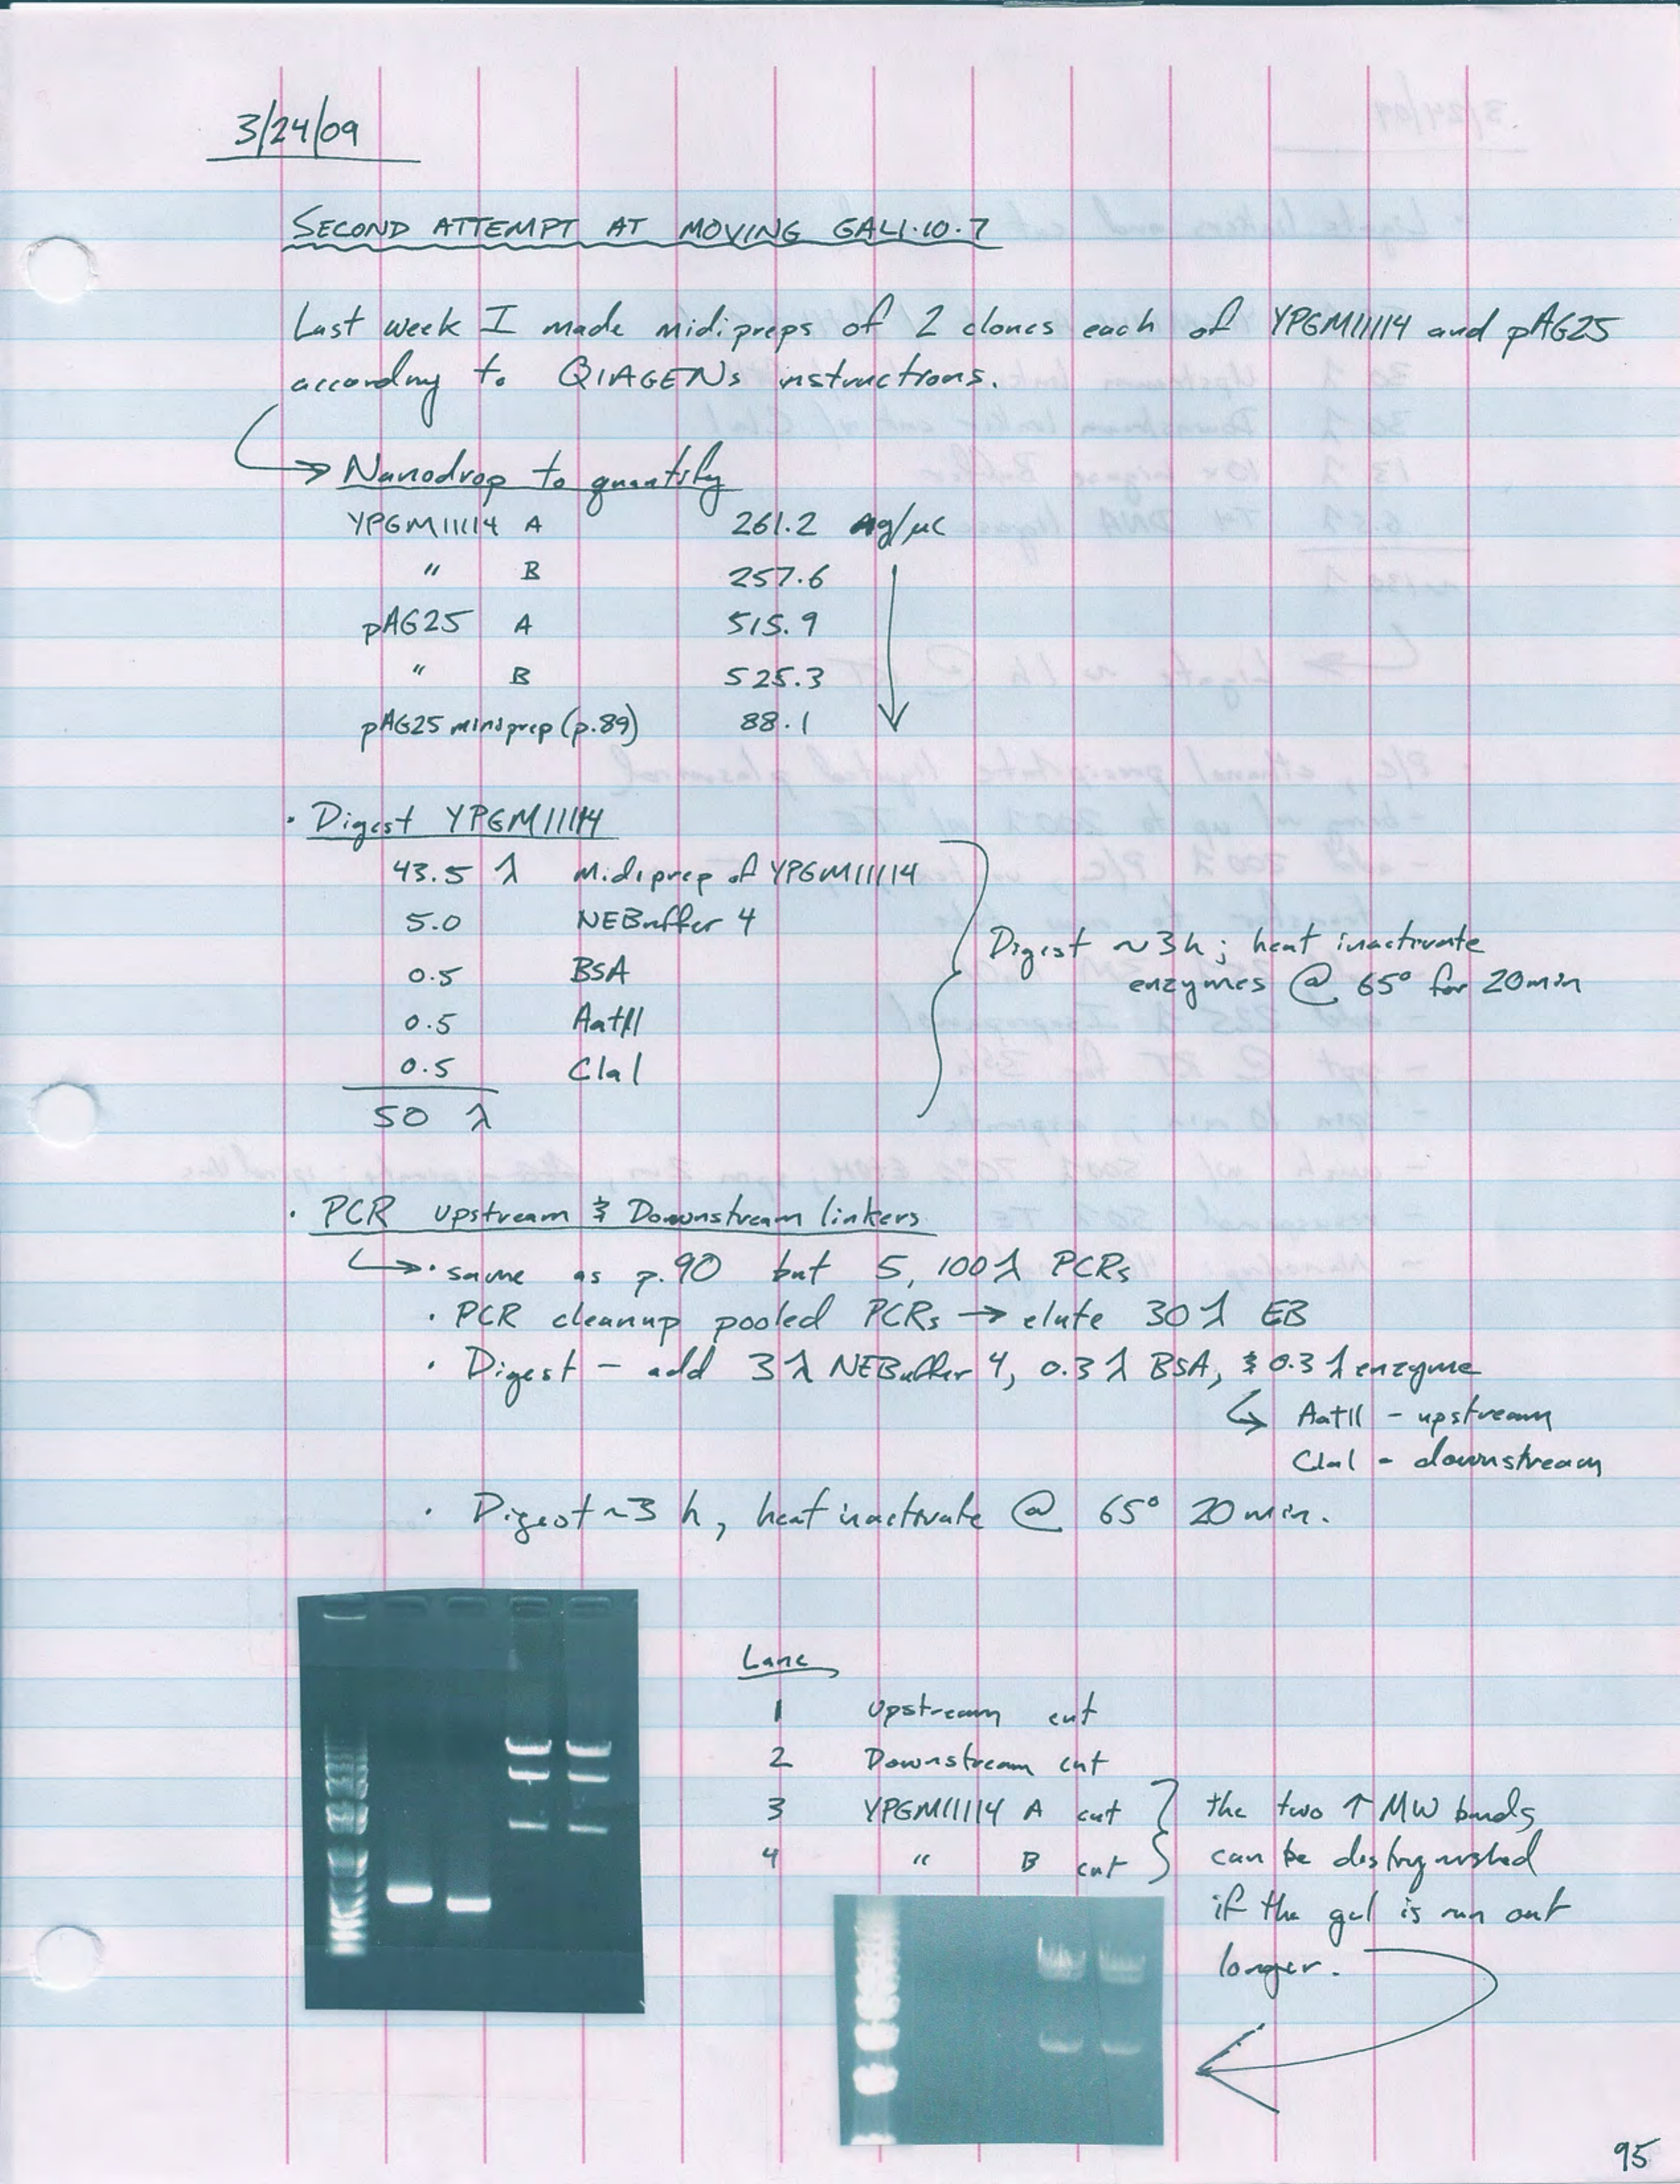 3/24/09
SECOND ATTEMPT AT MOVING GAL1.10.7
Last week I made midipreps of 2 clones each of YPGM11114 and pAG25
according to QIAGENs instructions.
Nanodrop to quantify
YPGM11114 A 261.2 ng/µL
" B 257.6
pAG25 A 515.9
" B 525.3
pAG25 miniprep (p.89) 88.1
· Digest YPGM11114
43.5 λ Midiprep of YPGM11114
5.0 NEBuffer 4
0.5 BSA
0.5 AatII
0.5 ClaI
50 λ
Digest ~3h; heat inactivate
enzymes @ 65° for 20min
· PCR upstream & Downstream linkers
· same as p.90 but 5, 100λ PCRs
· PCR cleanup pooled PCRs → elute 30λ EB
· Digest - add 3λ NEBuffer 4, 0.3λ BSA, & 0.3λ enzyme
AatII - upstream
ClaI - downstream
· Digest ~3 h, heat inactivate @ 65° 20min.
Lane
1 Upstream cut
2 Downstream cut
3 YPGM11114 A cut
4 " B cut
the two ↑ MW bands
can be distinguished
if the gel is run out
longer.
95